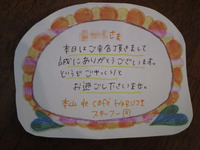 さま
本日はご来店頂きまして
誠にありがとうございます。
どうぞごゆっくりと
お過ごしくださいませ。
本山 de café HARUJI
スタッフ一同